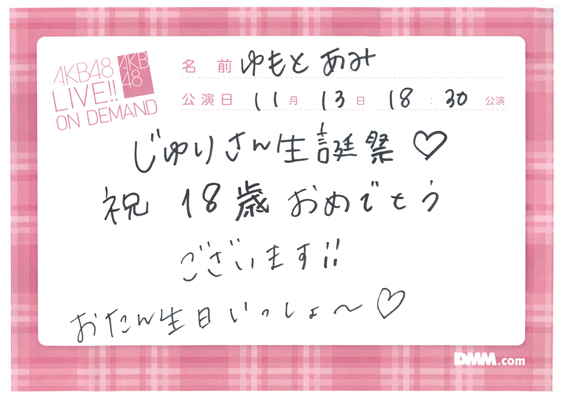 AKB48
LIVE!!
ON DEMAND
AKB
48
名 前 ゆもと あみ
公演日 11月 13日 18:30公演
じゅりさん生誕祭♡
祝 18歳 おめでとう
ございます!!
おたん生日いっしょ〜♡
DMM.com